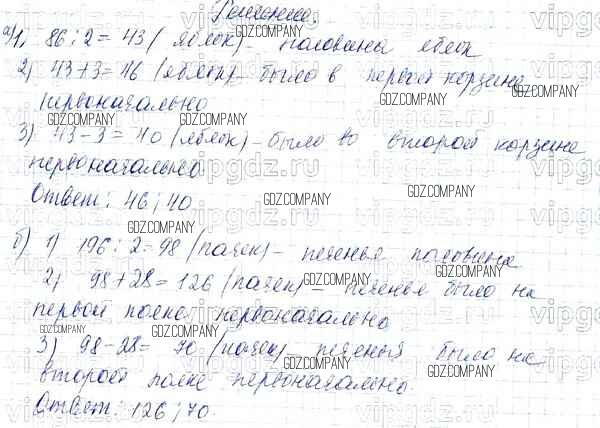 Решение.
а) 1) 86 : 2 = 43 (яблок) - половина яблок
2) 43 + 3 = 46 (яблок) - было в первой корзине
первоначально
3) 43 - 3 = 40 (яблок) - было во второй корзине
первоначально.
Ответ: 46; 40.
б) 1) 196 : 2 = 98 (пачек) - печенья половина
2) 98 + 28 = 126 (пачек) - печенья было на
первой полке первоначально
3) 98 - 28 = 70 (пачек) - печенья было на
второй полке первоначально.
Ответ: 126; 70.